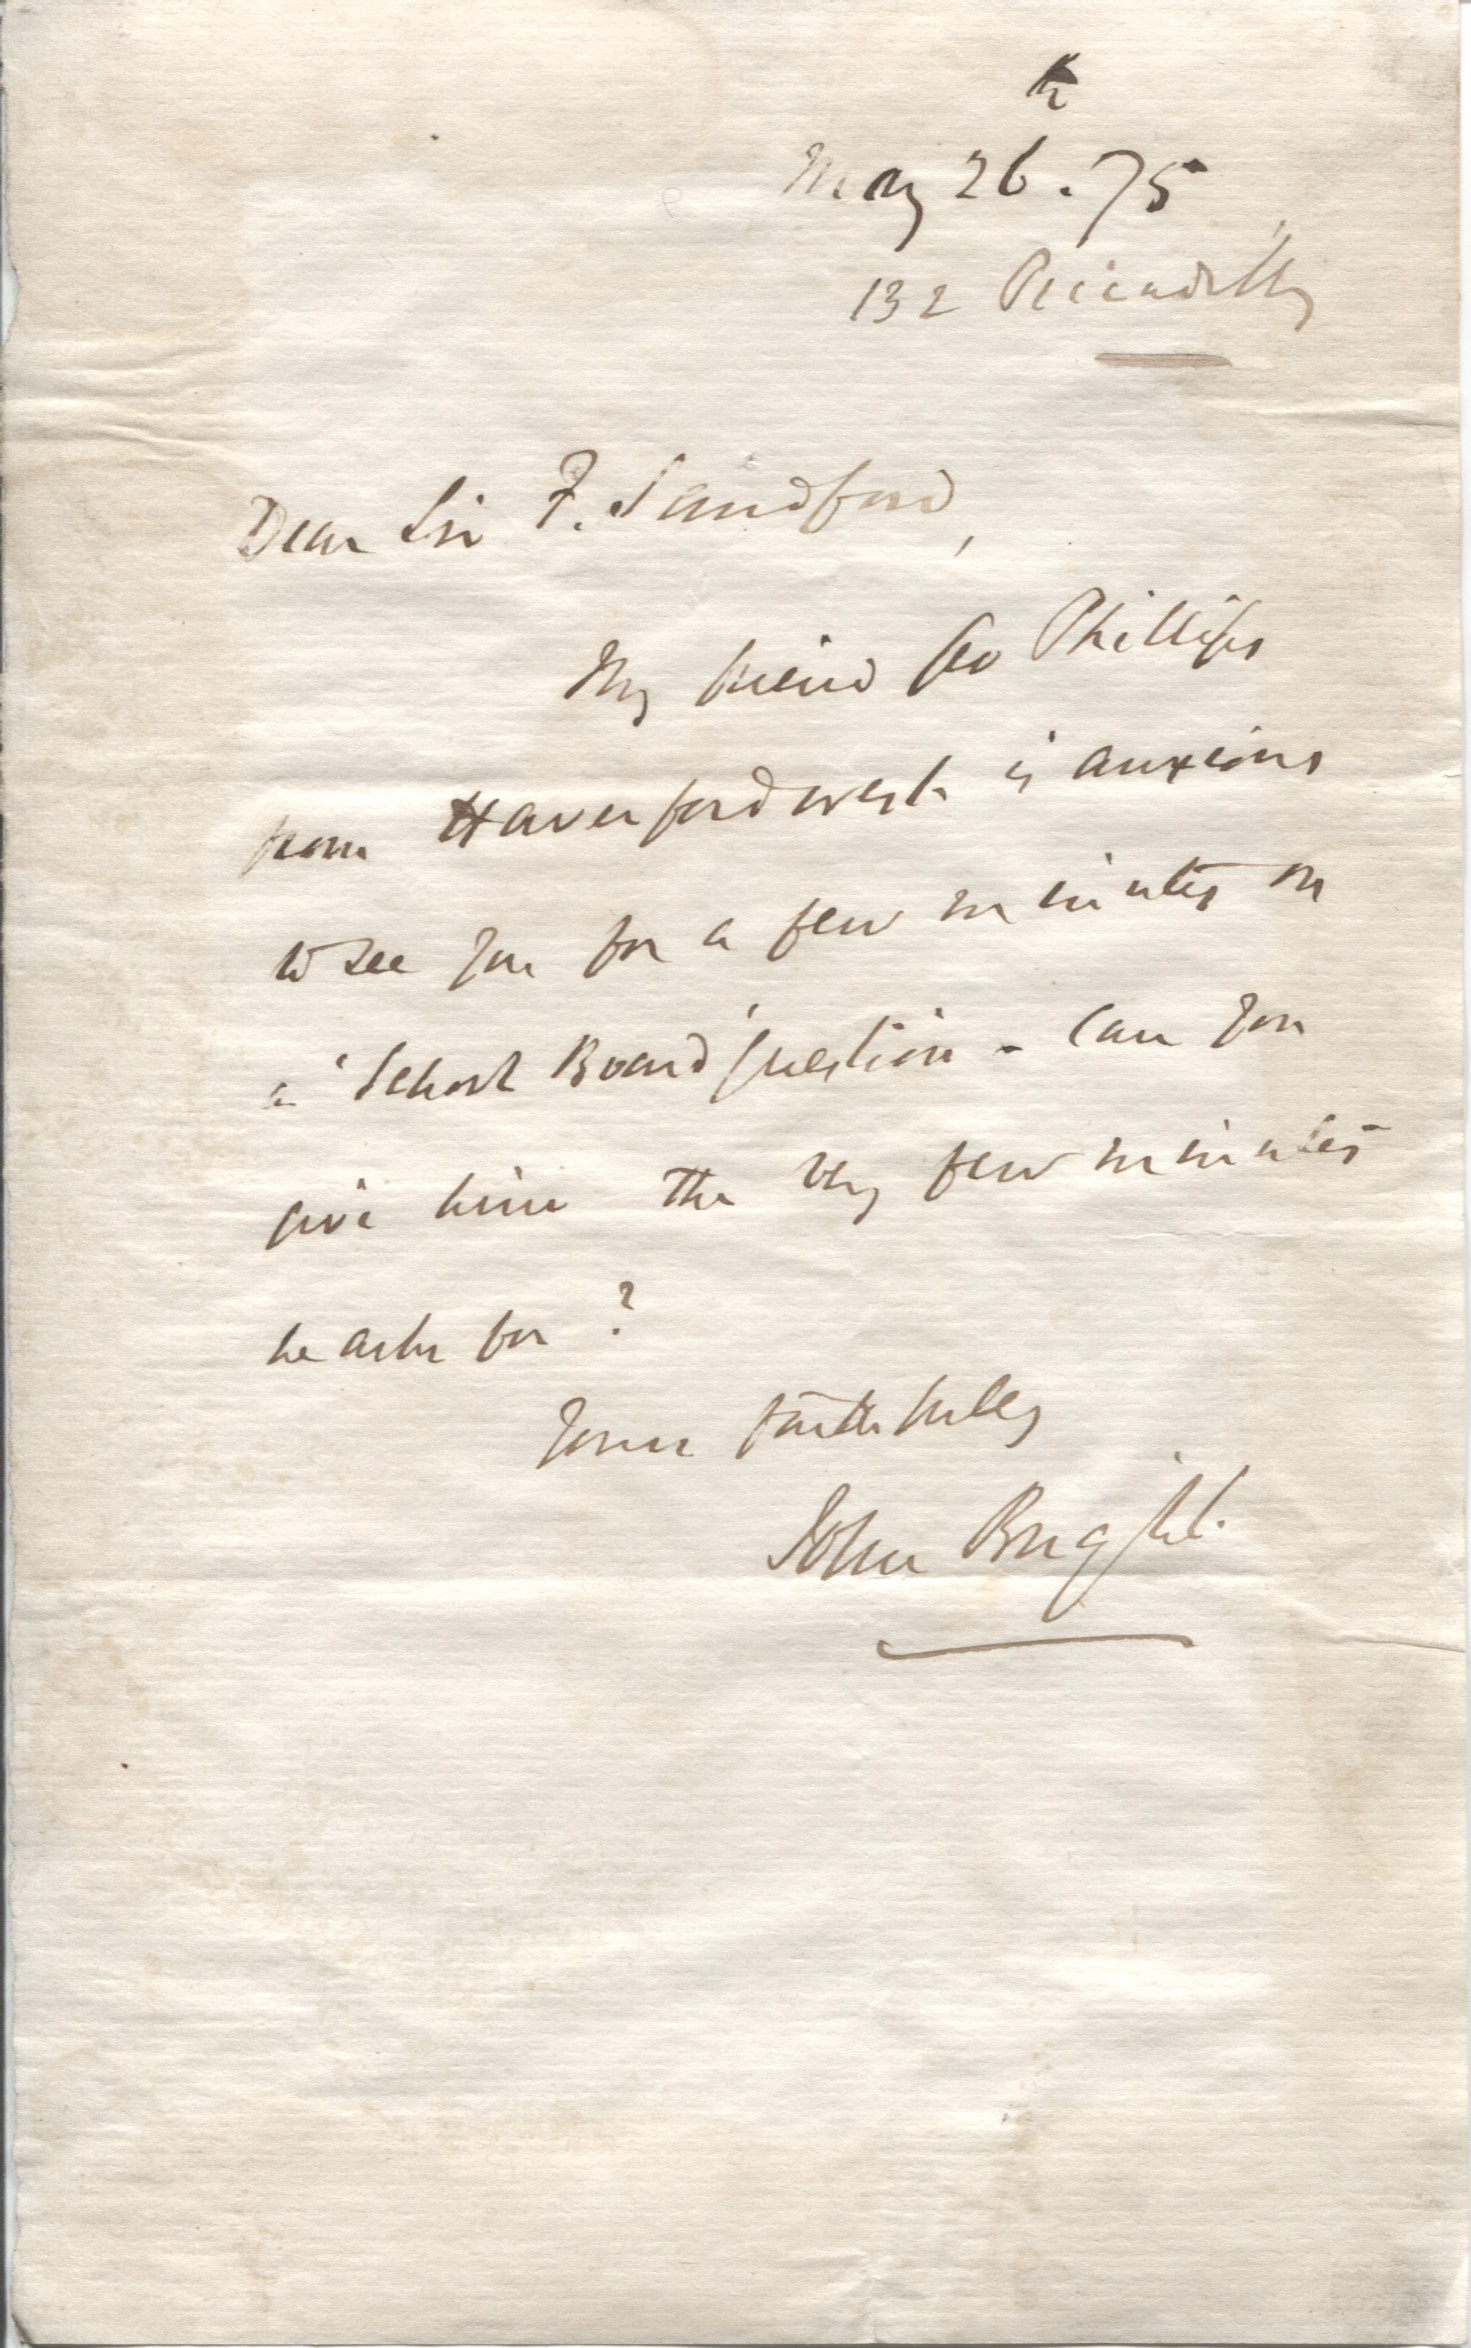 May 26. 75
132 Piccadilly
Dear Sir F. Sandford,
My friend Geo Phillips
from Haverfordwest is anxious
to see you for a few minutes on
a 'School Board' question - Can you
give him the very few minutes
he asks for?
Yours faithfully
John Bright.